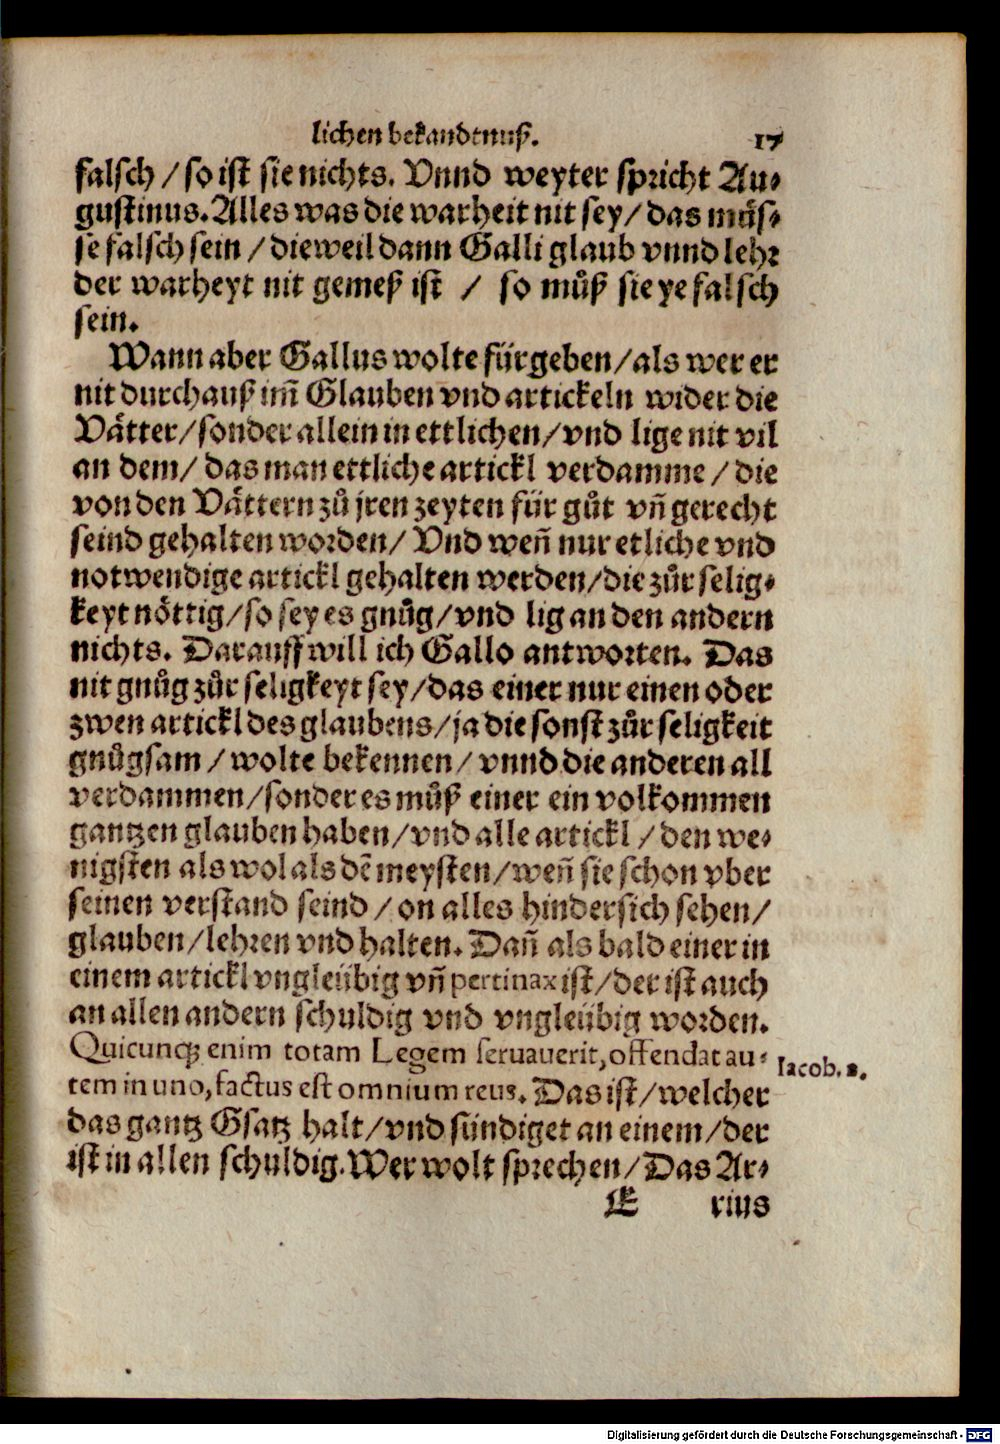 lichen bekandtnuß. 17
falsch / so ist sie nichts. Vnnd weyter spricht Au⸗
gustinus. Alles was die warheit nit sey / das müs⸗
se falsch sein / dieweil dann Galli glaub vnnd lehr
der warheyt nit gemeß ist / so můß sie ye falsch
sein.
Wann aber Gallus wolte fürgeben / als wer er
nit durchauß im̃ Glauben vnd artickeln wider die
Vätter / sonder allein in ettlichen / vnd lige nit vil
an dem / das man ettliche artickl verdamme / die
von den Vättern zů jren zeyten für gůt vñ gerecht
seind gehalten worden / Vnd weñ nur etliche vnd
notwendige artickl gehalten werden / die zůr selig⸗
keyt nöttig / so sey es gnůg / vnd lig an den andern
nichts. Darauff will ich Gallo antworten. Das
nit gnůg zůr seligkeyt sey / das einer nur einen oder
zwen artickl des glaubens / ja die sonst zůr seligkeit
gnůgsam / wolte bekennen / vnnd die anderen all
verdammen / sonder es můß einer ein volkommen
gantzen glauben haben / vnd alle artickl / den we⸗
nigsten als wol als dẽ meysten / weñ sie schon vber
seinen verstand seind / on alles hindersich sehen /
glauben / lehren vnd halten. Dañ als bald einer in
einem artickl vngleübig vñ pertinax ist / der ist auch
an allen andern schuldig vnd vngleübig worden.
Quicunq; enim totam Legem seruauerit, offendat au⸗ Iacob. 2.
tem in uno, factus est omnium reus. Das ist / welcher
das gantz Gsatz halt / vnd sündiget an einem / der
ist in allen schuldig. Wer wolt sprechen / Das Ar⸗
E rius
Digitalisierung gefördert durch die Deutsche Forschungsgemeinschaft - DFG